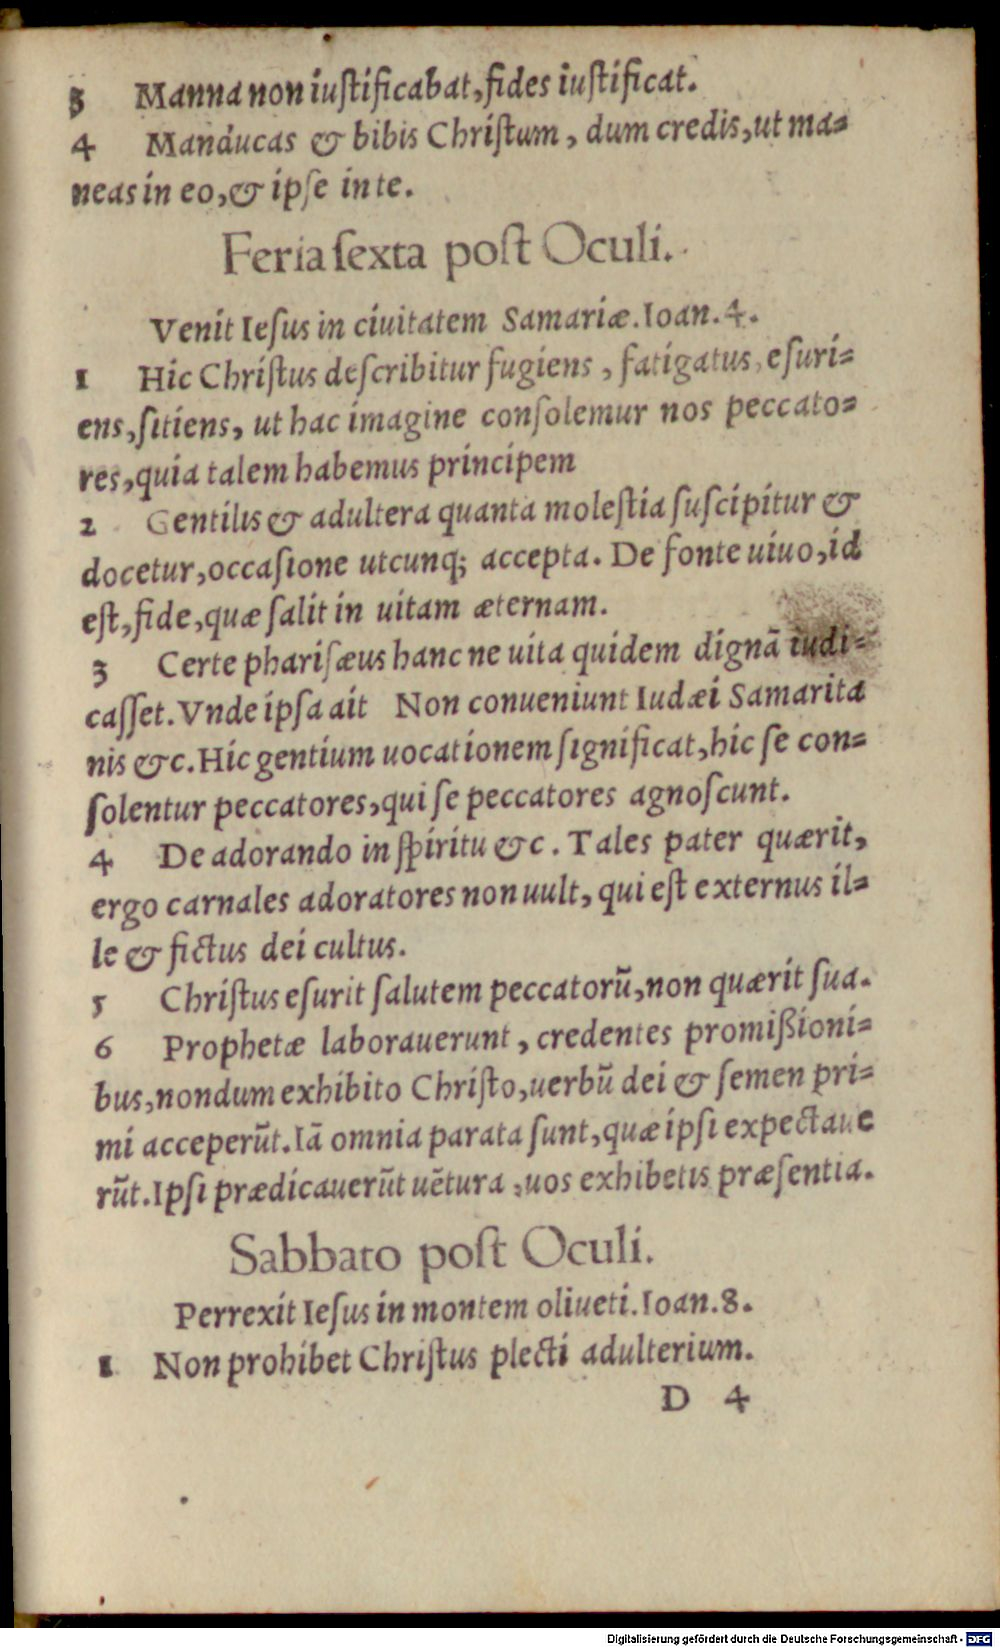 3 Manna non iuſtificabat, fides iuſtificat.
4 Manducas & bibis Chriſtum, dum credis, ut ma=
neas in eo, & ipſe in te.
Feria ſexta poſt Oculi.
Venit Ieſus in ciuitatem Samariæ. Ioan. 4.
1 Hic Chriſtus deſcribitur fugiens, fatigatus, eſuri=
ens, ſitiens, ut hac imagine conſolemur nos peccato=
res, quia talem habemus principem
2 Gentilis & adultera quanta moleſtia ſuſcipitur &
docetur, occaſione utcunq; accepta. De fonte uiuo, id
eſt, fide, quæ ſalit in uitam æternam.
3 Certe phariſæus hanc ne uita quidem dignā iudi=
caſſet. Vnde ipſa ait Non conueniunt Iudæi Samarita
nis &c. Hic gentium uocationem ſignificat, hic ſe con=
ſolentur peccatores, qui ſe peccatores agnoſcunt.
4 De adorando in ſpiritu &c. Tales pater quærit,
ergo carnales adoratores non uult, qui eſt externus il=
le & fictus dei cultus.
5 Chriſtus eſurit ſalutem peccatorū, non quærit ſua.
6 Prophetæ laborauerunt, credentes promißioni=
bus, nondum exhibito Chriſto, uerbū dei & ſemen pri=
mi acceperūt. Iā omnia parata ſunt, quæ ipſi expectaue
rūt. Ipſi prædicauerūt uētura, uos exhibetis præſentia.
Sabbato poſt Oculi.
Perrexit Ieſus in montem oliueti. Ioan. 8.
1 Non prohibet Chriſtus plecti adulterium.
D 4
Digitalisierung gefördert durch die Deutsche Forschungsgemeinschaft - DFG